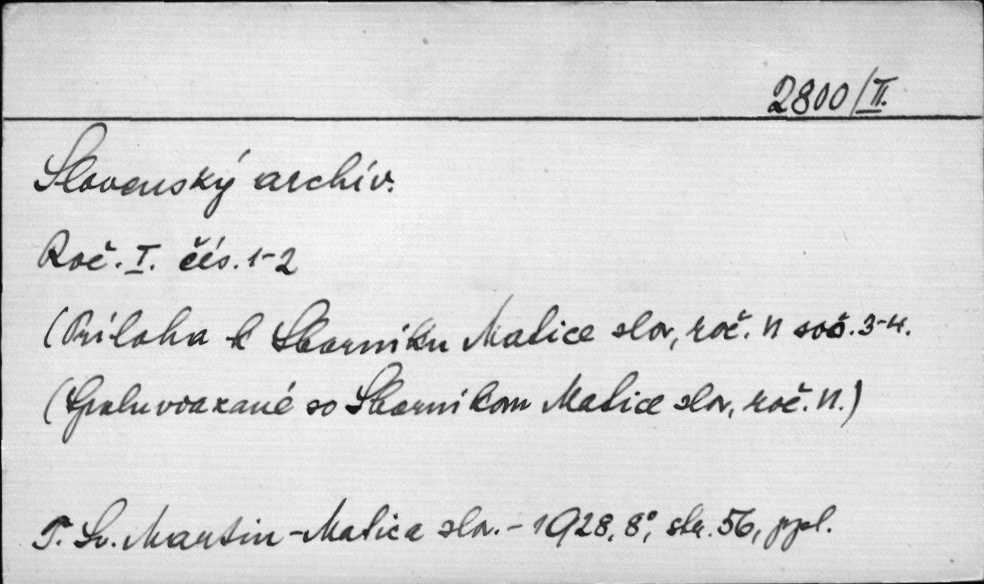 2800/II.
Slovenský archív.
Roč. I. čís. 1-2
(Príloha k Sborníku Matice slov, roč. VI soš. 3-4.
(Spoluviazané so Sborníkom Matice slov, roč. VI.)
T. Sv. Martin - Matica slov. - 1928, 8°, str. 56, ppl.